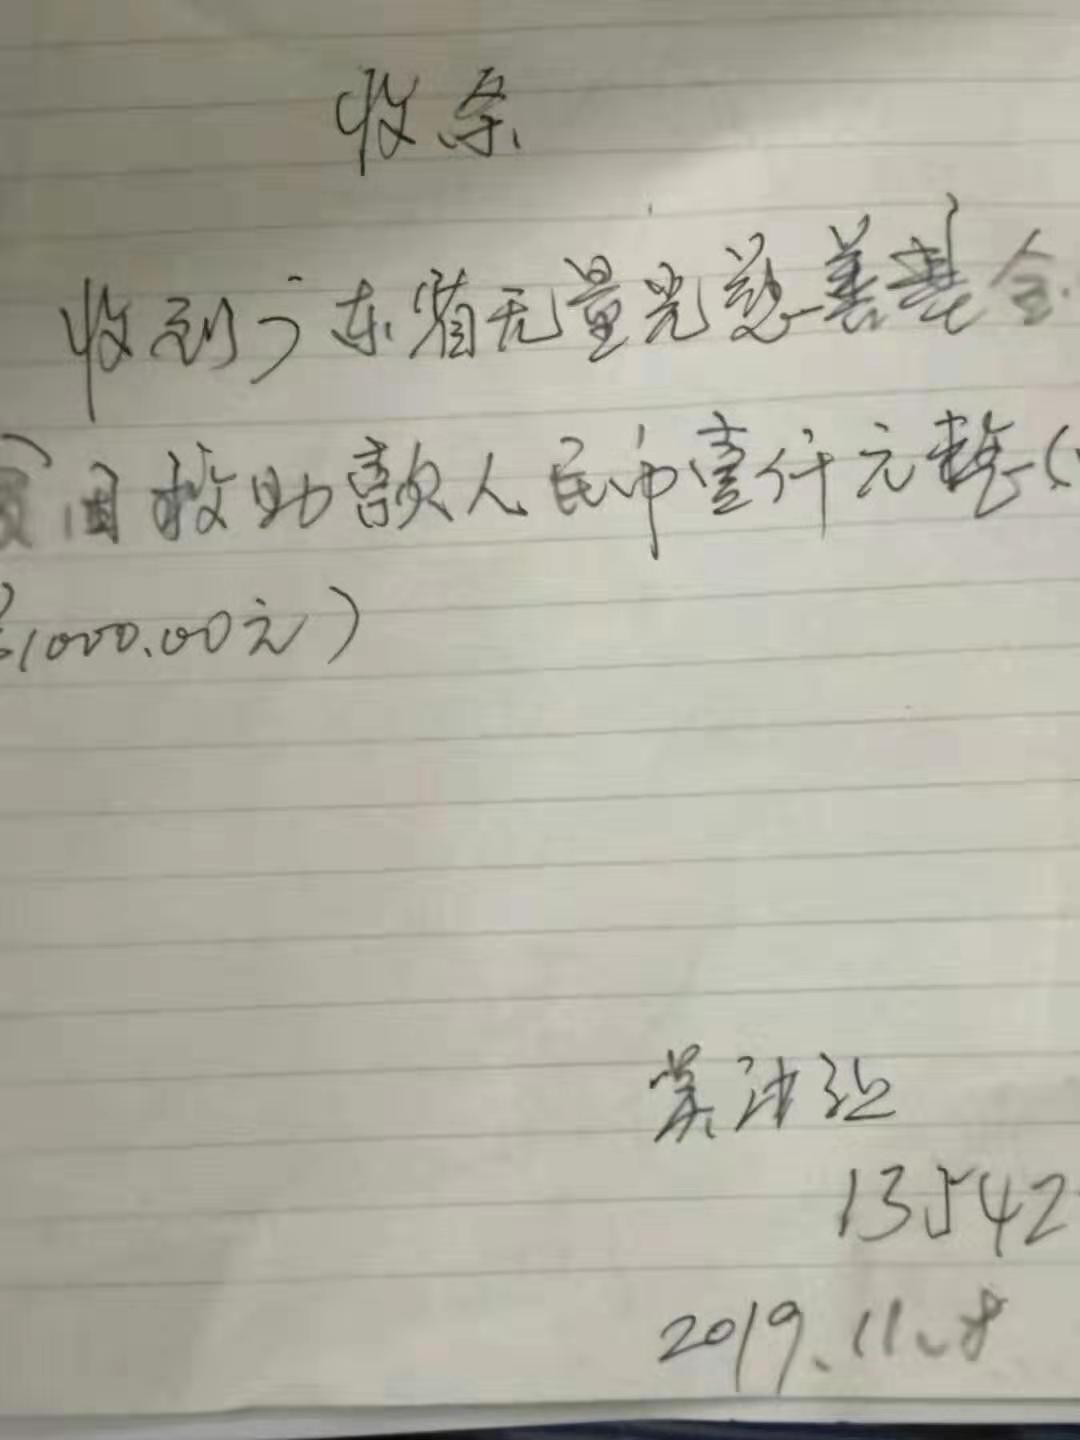 收条
收到广东省无量光慈善基金
贫困救助款人民币壹仟元整(
1000.00元)
13542
2019.11.8